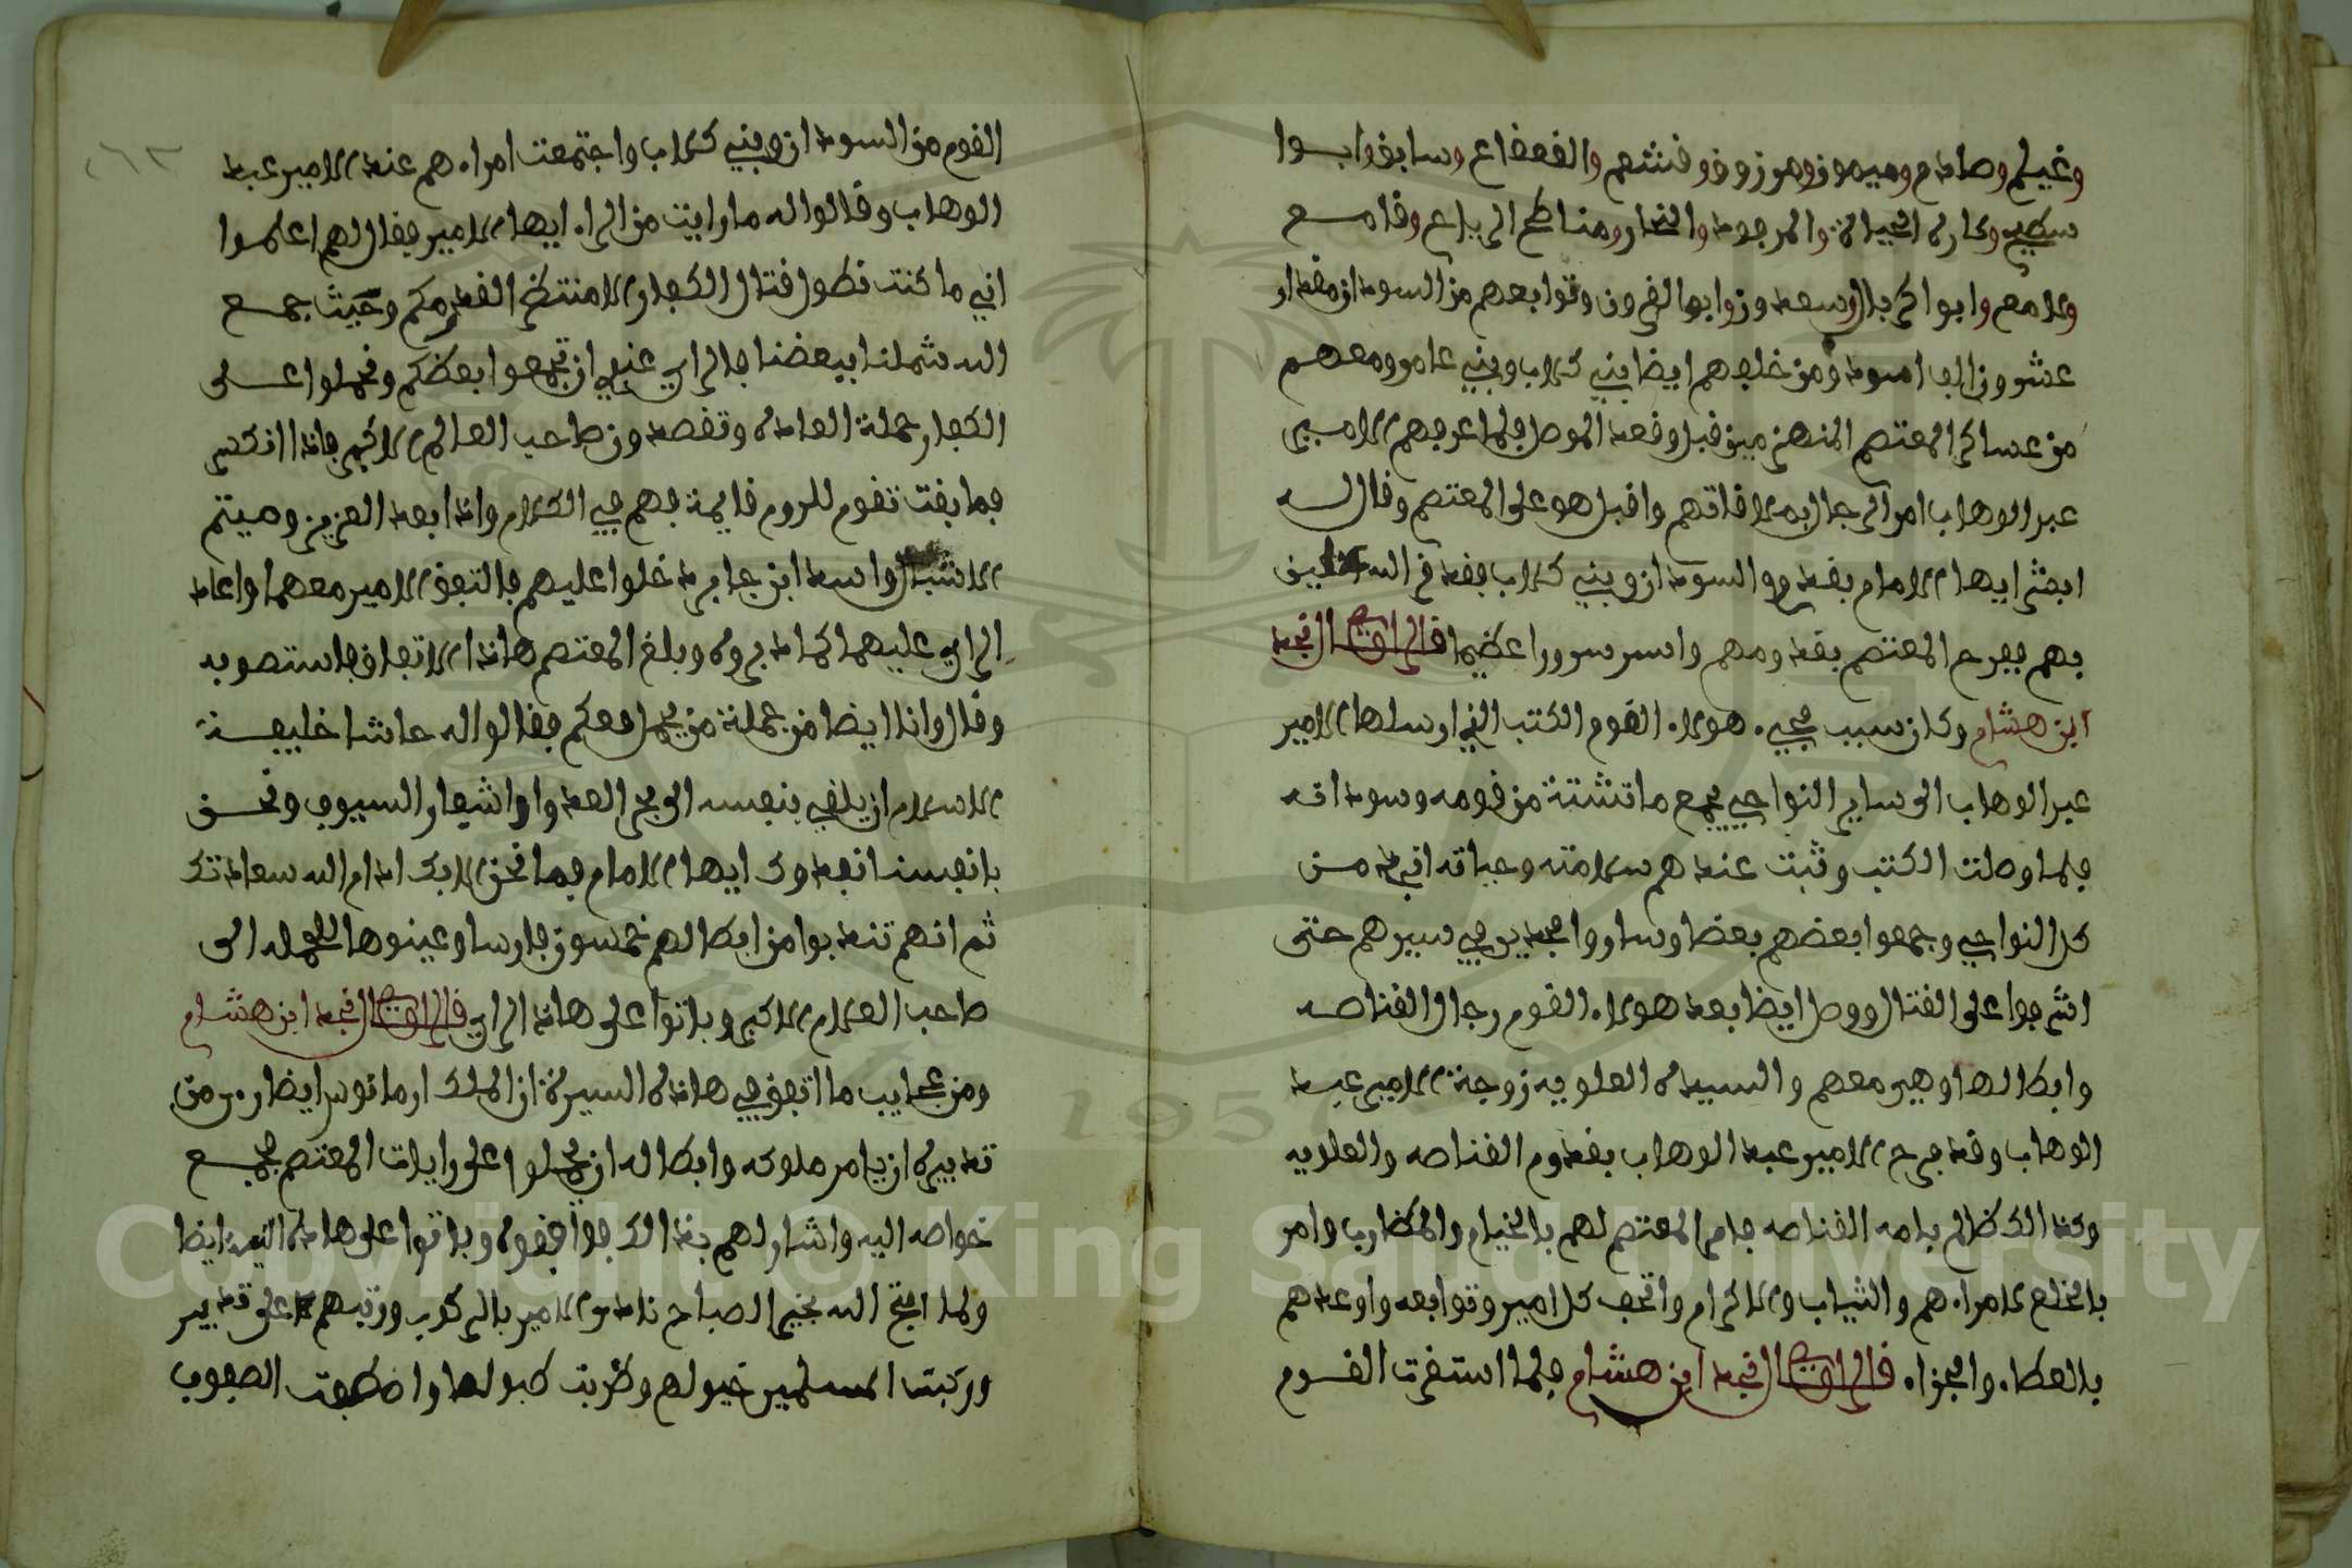 وغيلم وصادم وميمون ومرزوق وقشعم والقعقاع وسابق وابوا
والمرجود والنحار ومناطح الرياع وقامع
ولامع وابوا كربال وسعد وزوابع القرون وتوابعهم من السودان مقدار
عشرون الف اسود ومن خلفهم ايضا بني كلاب وبني عامر ومعهم
من عساكر المعتصم المنهزمين قبل وقعة الموصل فلما عرفهم الامير
عبد الوهاب امر الرجال بملاقاتهم واقبل هو على المعتصم وقال له
ابشر ايها الامام بقدوم السودان وبني كلاب فقد الله
بهم ففرح المعتصم بقدومهم واسر سرورا عظيما قال الراوي النجد
ابن هشام وكان سبب مجيء هولاء القوم الكتب التي ارسلها الامير
عبد الوهاب الى ساير النواحي بجمع ما تشتته من قومه وسودانه
فلما وصلت الكتب وثبت عندهم سلامته وحياته اني من
كل النواحي وجمعوا بعضهم بعضا وساروا مجدين في سيرهم حتى
اشرفوا على القتال ووصل ايضا بعد هولاء القوم رجال القناصه
وابطالها وهي معهم والسيدة العلويه زوجة الامير عبد
الوهاب وقد فرح الامير عبد الوهاب بقدوم القناصه والعلويه
وكذالك ظالم بامه القناصه فامر المعتصم لهم بالخيام والمظارب وامر
بالخلع لامراءهم والثياب والاكرام واتحف كل امير وتوابعه واوعدهم
بالعطاء والجزاء قال الراوي النجد ابن هشام فلما استقرت القوم
القوم من السودان وبني كلاب واجتمعت امراءهم عند الامير عبد
الوهاب وقالوا له ما رايت من الراء ايها الامير فقال لهم اعلموا
اني ما كنت نطول قتال الكفار الا منتظر القدومكم وحيث جمع
الله شملنا ببعضنا فالراي عندي ان تجمعوا بعظكم وتحملوا على
الكفار حملة العادة وتقصدون صاحب العالم الاكبر فاذا انكسر
فما بقت تقوم للروم قايمة فهم في الكلام واذا بعد العزيز وميتم
الاشبال واسد ابن عامر دخلوا عليهم فالتفق الامير معهما واعاد
الراي عليهما كما دبروه وبلغ المعتصم هاذا الاتفاق فاستصوبه
وقال وانا ايضا من جملة من يحمل معكم فقالوا له حاشا خليفة
الاسلام ان يلقي بنفسه الى بحر العدوا واشفار السيوف ونحن
بانفسنا نفدوك ايها الامام فما نحن الا بك ادام الله سعادتك
ثم انهم تندبوا من ابطالهم خمسون فارسا وعينوها للحمله الى
صاحب العلام الاكبر وباتوا على هاذا الراي قال الراوي النجد ابن هشام
ومن عجايب ما اتفق في هاذه السيرة ان الملك ارمانوس ايضا من
تدبيره ان يامر ملوكه وابطاله ان يحملوا على رايات المعتصم بجميع
خواصه اليه واشار لهم بذالك فوافقوه وباتوا على هاذه النيه ايضا
ولما افتح الله بخير الصباح نادى الامير بالركوب ورتبهم على تدبير
وركبت المسلمين خيولهم وظربت طبولها واصطفت الصفوف